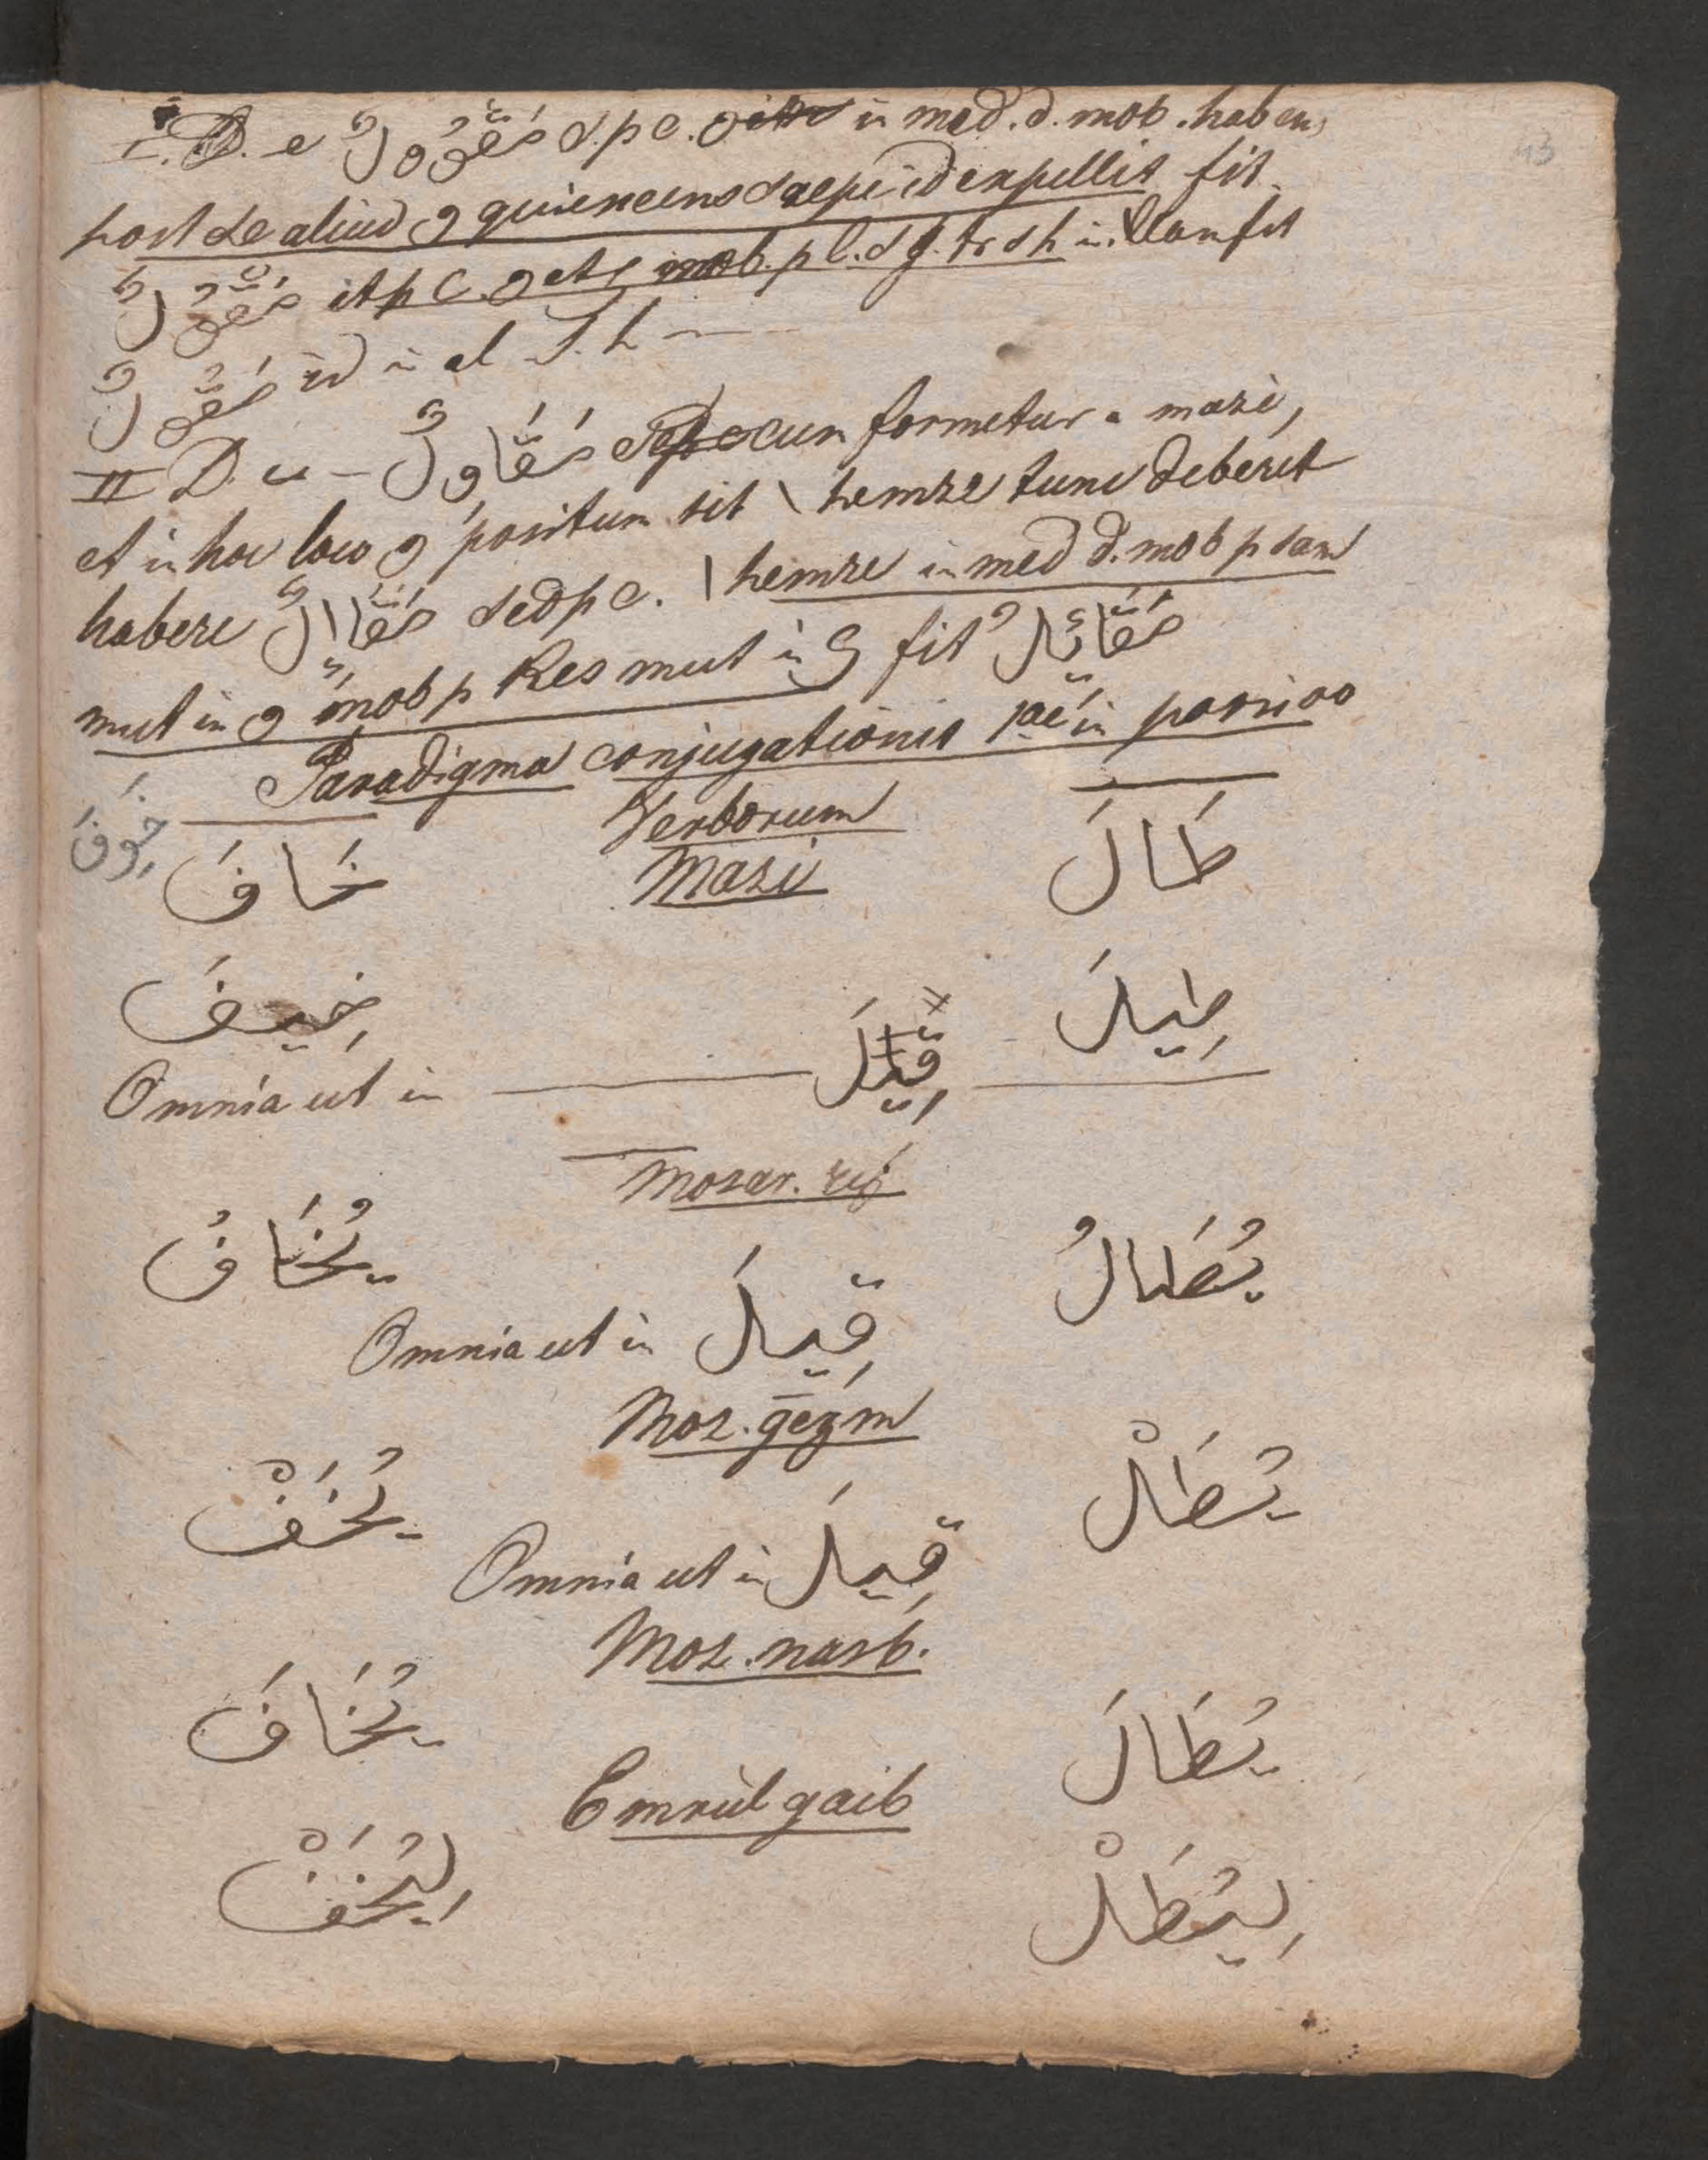 I. D. e مَقْوُولٌ s. p c. و in med. d. mob. haben
post se aliud و quiescens saepe id expellit fit
مَقُولٌ it p c. و et ى mob. p l. s g. tr s h in illam fit
مَقُولٌ id in el T. h —
II D. u – مَقَاوِلٌ cum formetur a mazi,
et in hoc loco و positum sit ا hemze tunc deberet
habere مَقَااِلٌ sed p c. ا hemze in med d. mob p sam
mut in و mob p Kes mut in ى fit مَقَائِلٌ
Paradigma conjugationis 1ae in passivo
Verborum
خَوِفَ
خَافَ Mazi طَالَ
خِيفَ قِيلَ طِيلَ
Omnia ut in
Mozar. ref
يُخَافُ يُطَالُ
Omnia ut in قِيلَ
Moz. gezm
يُخَفْ يُطَلْ
Omnia ut in قِيلَ
Moz. nasb.
يُخَافَ يُطَالَ
Emrül gaib
لِيُخَفْ لِيُطَلْ